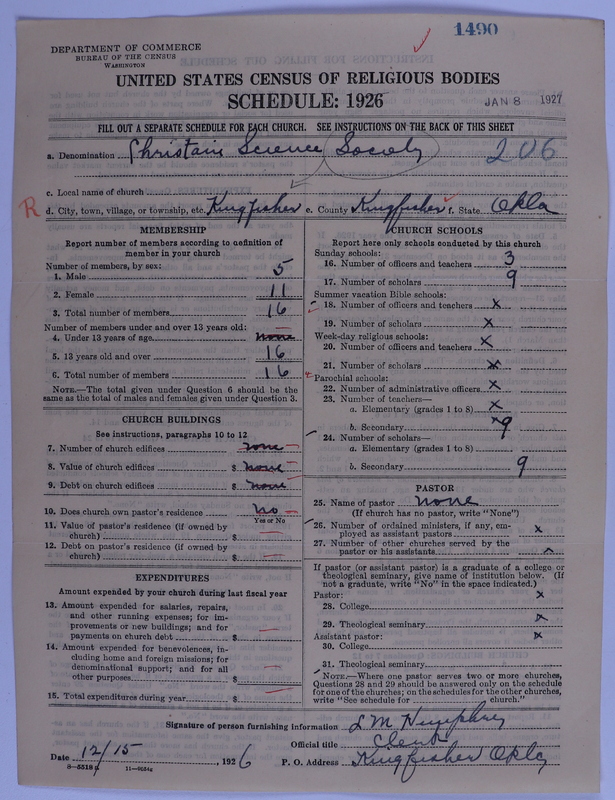 1490
DEPARTMENT OF COMMERCE
BUREAU OF THE CENSUS
WASHINGTON
UNITED STATES CENSUS OF RELIGIOUS BODIES
SCHEDULE: 1926
JAN 8 1927
FILL OUT A SEPARATE SCHEDULE FOR EACH CHURCH. SEE INSTRUCTIONS ON THE BACK OF THIS SHEET
a. Denomination Christain Science Society 206
c. Local name of church
R d. City, town, village, or township, etc. Kingfisher e. County Kingfisher f. State Okla
MEMBERSHIP
Report number of members according to definition of
member in your church
Number of members, by sex:
1. Male 5
2. Female 11
3. Total number of members 16
Number of members under and over 13 years old:
4. Under 13 years of age none
5. 13 years old and over 16
6. Total number of members 16
NOTE.—The total given under Question 6 should be the
same as the total of males and females given under Question 3.
CHURCH BUILDINGS
See instructions, paragraphs 10 to 12
7. Number of church edifices none
8. Value of church edifices $ none
9. Debt on church edifices $ none
10. Does church own pastor's residence? no
Yes or No
11. Value of pastor's residence (if owned by
church) $
12. Debt on pastor's residence (if owned by
church) $
EXPENDITURES
Amount expended by your church during last fiscal year
13. Amount expended for salaries, repairs,
and other running expenses; for im-
provements or new buildings; and for
payments on church debt $
14. Amount expended for benevolences, in-
cluding home and foreign missions; for
denominational support; and for all
other purposes $
15. Total expenditures during year $
CHURCH SCHOOLS
Report here only schools conducted by this church
Sunday schools:
16. Number of officers and teachers 3
17. Number of scholars 9
Summer vacation Bible schools:
18. Number of officers and teachers x
19. Number of scholars x
Week-day religious schools:
20. Number of officers and teachers x
21. Number of scholars x
Parochial schools:
22. Number of administrative officers x
23. Number of teachers—
a. Elementary (grades 1 to 8) x
b. Secondary 9
24. Number of scholars—
a. Elementary (grades 1 to 8)
b. Secondary 9
PASTOR
25. Name of pastor none
(If church has no pastor, write "None")
26. Number of ordained ministers, if any, em-
ployed as assistant pastors x
27. Number of other churches served by the
pastor or his assistants
If pastor (or assistant pastor) is a graduate of a college or
theological seminary, give name of institution below. (If
not a graduate, write "No" in the space indicated.)
Pastor: x
28. College
29. Theological seminary x
Assistant pastor: x
30. College
31. Theological seminary
NOTE.—Where one pastor serves two or more churches,
Questions 28 and 29 should be answered only on the schedule
for one of the churches; on the schedules for the other churches,
write "See schedule for church."
Signature of person furnishing information L M Humphrey
Official title Clerk
Date 12/15, 1926 P. O. Address Kingfisher Okla
8—5518a 11—9034g